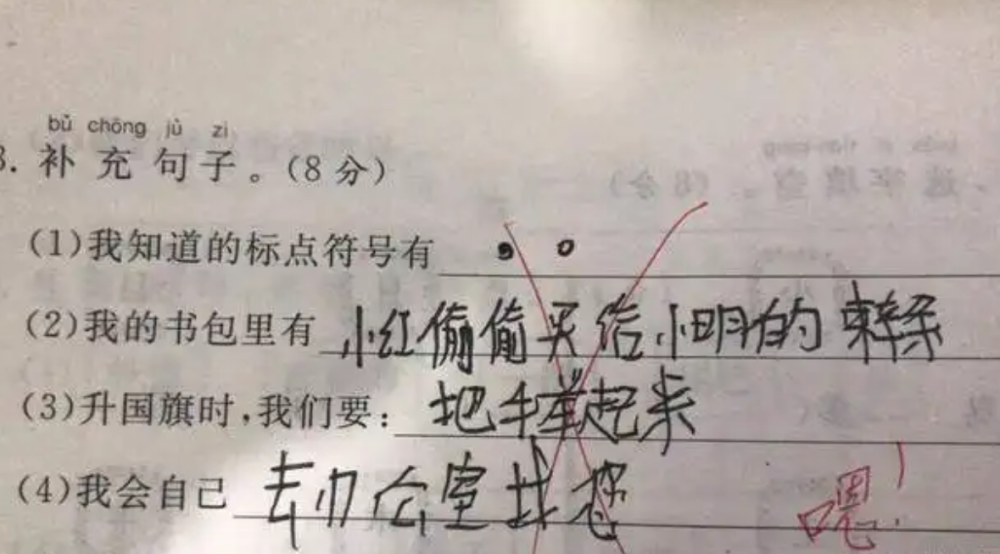 bǔ chōng jù zi
3.补充句子。(8分)
(1)我知道的标点符号有 , 。
(2)我的书包里有 小红偷偷买给小明的辣条
(3)升国旗时,我们要:把手举起来
(4)我会自己 去办公室找您
嗯!